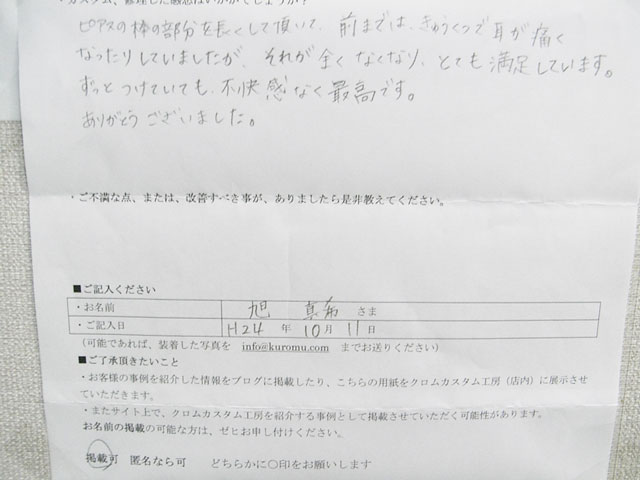 ・カスタム、修理した感想はいかがでしょうか？
ピアスの棒の部分を長くして頂いて、前までは、きゅうくつで耳が痛く
なったりしていましたが、それが全くなくなり、とても満足しています。
ずっとつけていても、不快感なく最高です。
ありがとうございました。
・ご不満な点、または、改善すべき事が、ありましたら是非教えてください。
■ご記入ください
・お名前 旭 真希 さま
・ご記入日 H24 年 10月 11日
(可能であれば、装着した写真を info@kuromu.com までお送りください)
■ご了承頂きたいこと
・お客様の事例を紹介した情報をブログに掲載したり、こちらの用紙をクロムカスタム工房（店内）に展示させ
ていただきます。
・またサイト上で、クロムカスタム工房を紹介する事例として掲載させていただく可能性があります。
お名前の掲載の可能な方は、ゼヒお申し付けください。
掲載可 匿名なら可 どちらかに〇印をお願いします